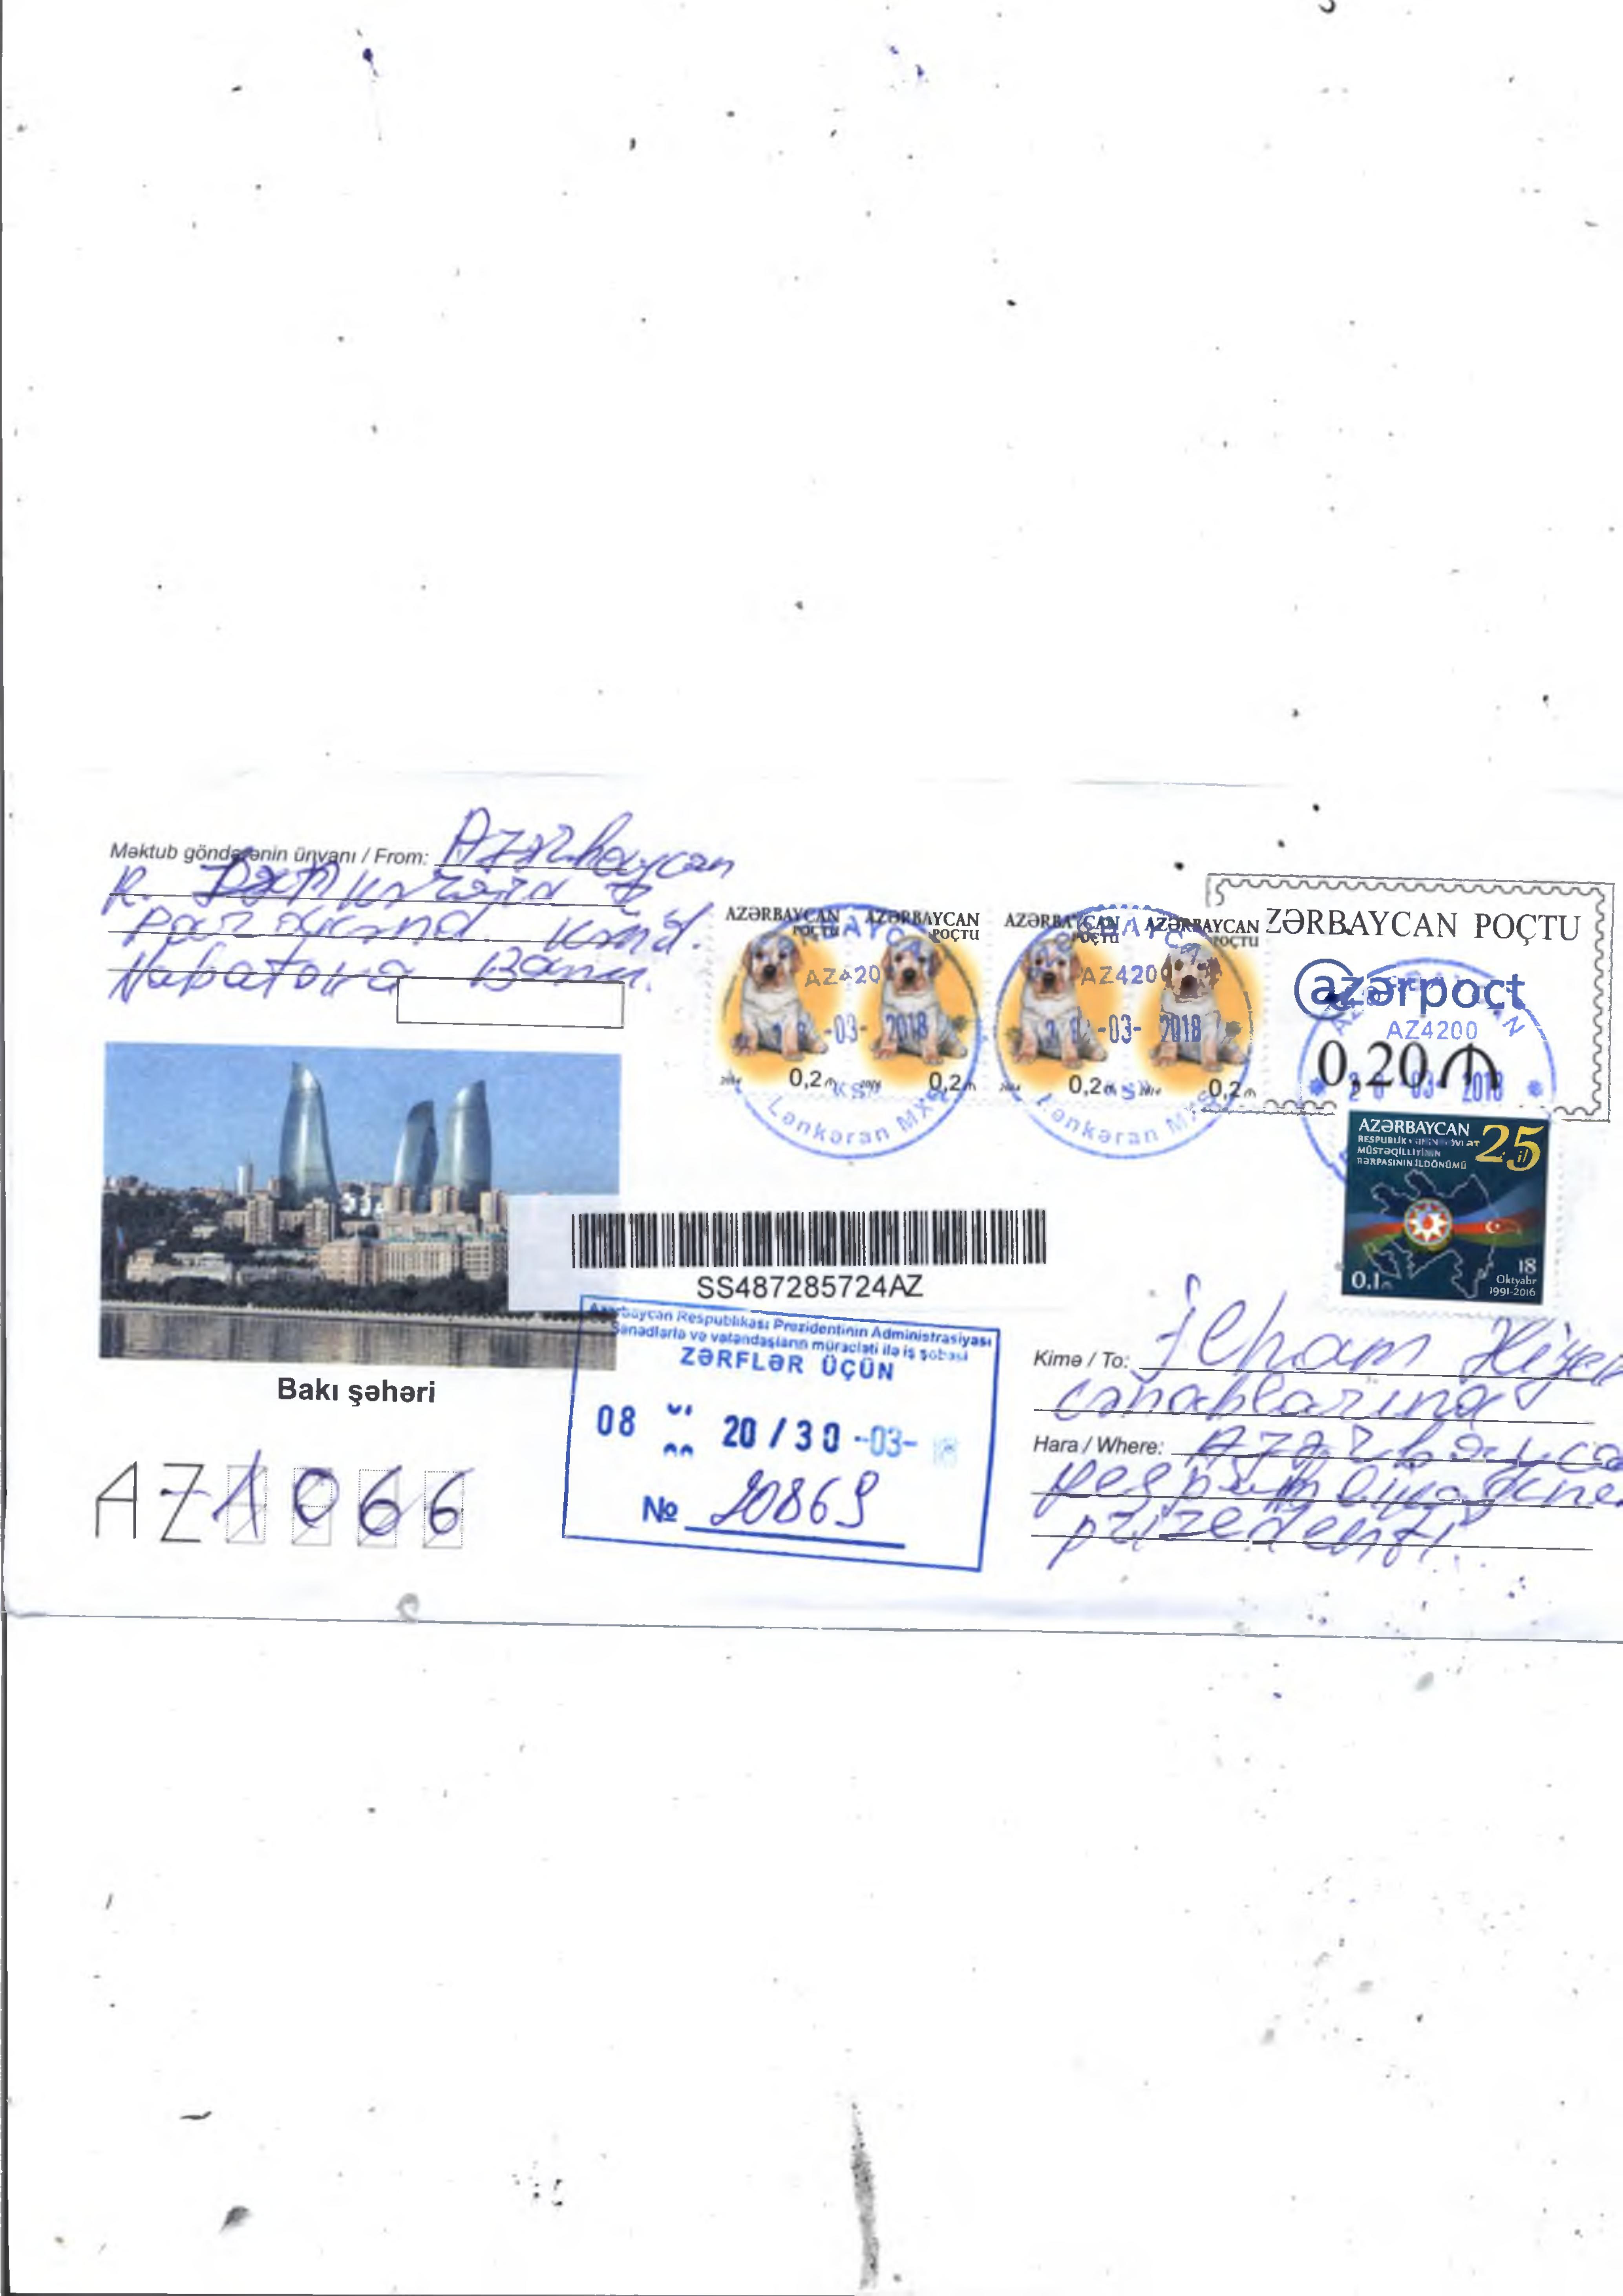 Məktub göndərənin ünvanı / From: Azərbaycan
R.
kənd.
Nabatova Banu.
AZƏRBAYCAN POÇTU
AZƏRBAYCAN POÇTU
AZƏRBAYCAN POÇTU
AZƏRBAYCAN POÇTU
0,2
0,2
0,2
0,2
AZ420
-03- 2018
Lənkəran MXŞ
AZ420
-03- 2018
Lənkəran
ZƏRBAYCAN POÇTU
azərpoçt
AZ4200
0,20₼
03 2018
AZƏRBAYCAN
MÜSTƏQİLLİYİNİN
BƏRPASININ İLDÖNÜMÜ
25 il
0,1
18
Oktyabr
1991-2016
Bakı şəhəri
SS487285724AZ
Azərbaycan Respublikası Prezidentinin Administrasiyası
Sənədlərlə və vətəndaşların müraciəti ilə iş şöbəsi
ZƏRFLƏR ÜÇÜN
08 20 / 30 -03- 18
№ 20869
AZ1066
Kimə / To: İlham Əliyev
cənablarına
Hara / Where: Azərbayca
prizedenti.